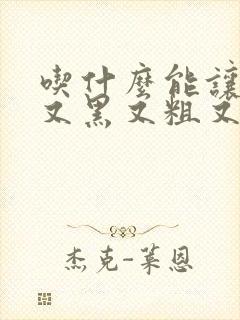 喫什麼能讓
又黑又粗又
杰克-萊恩